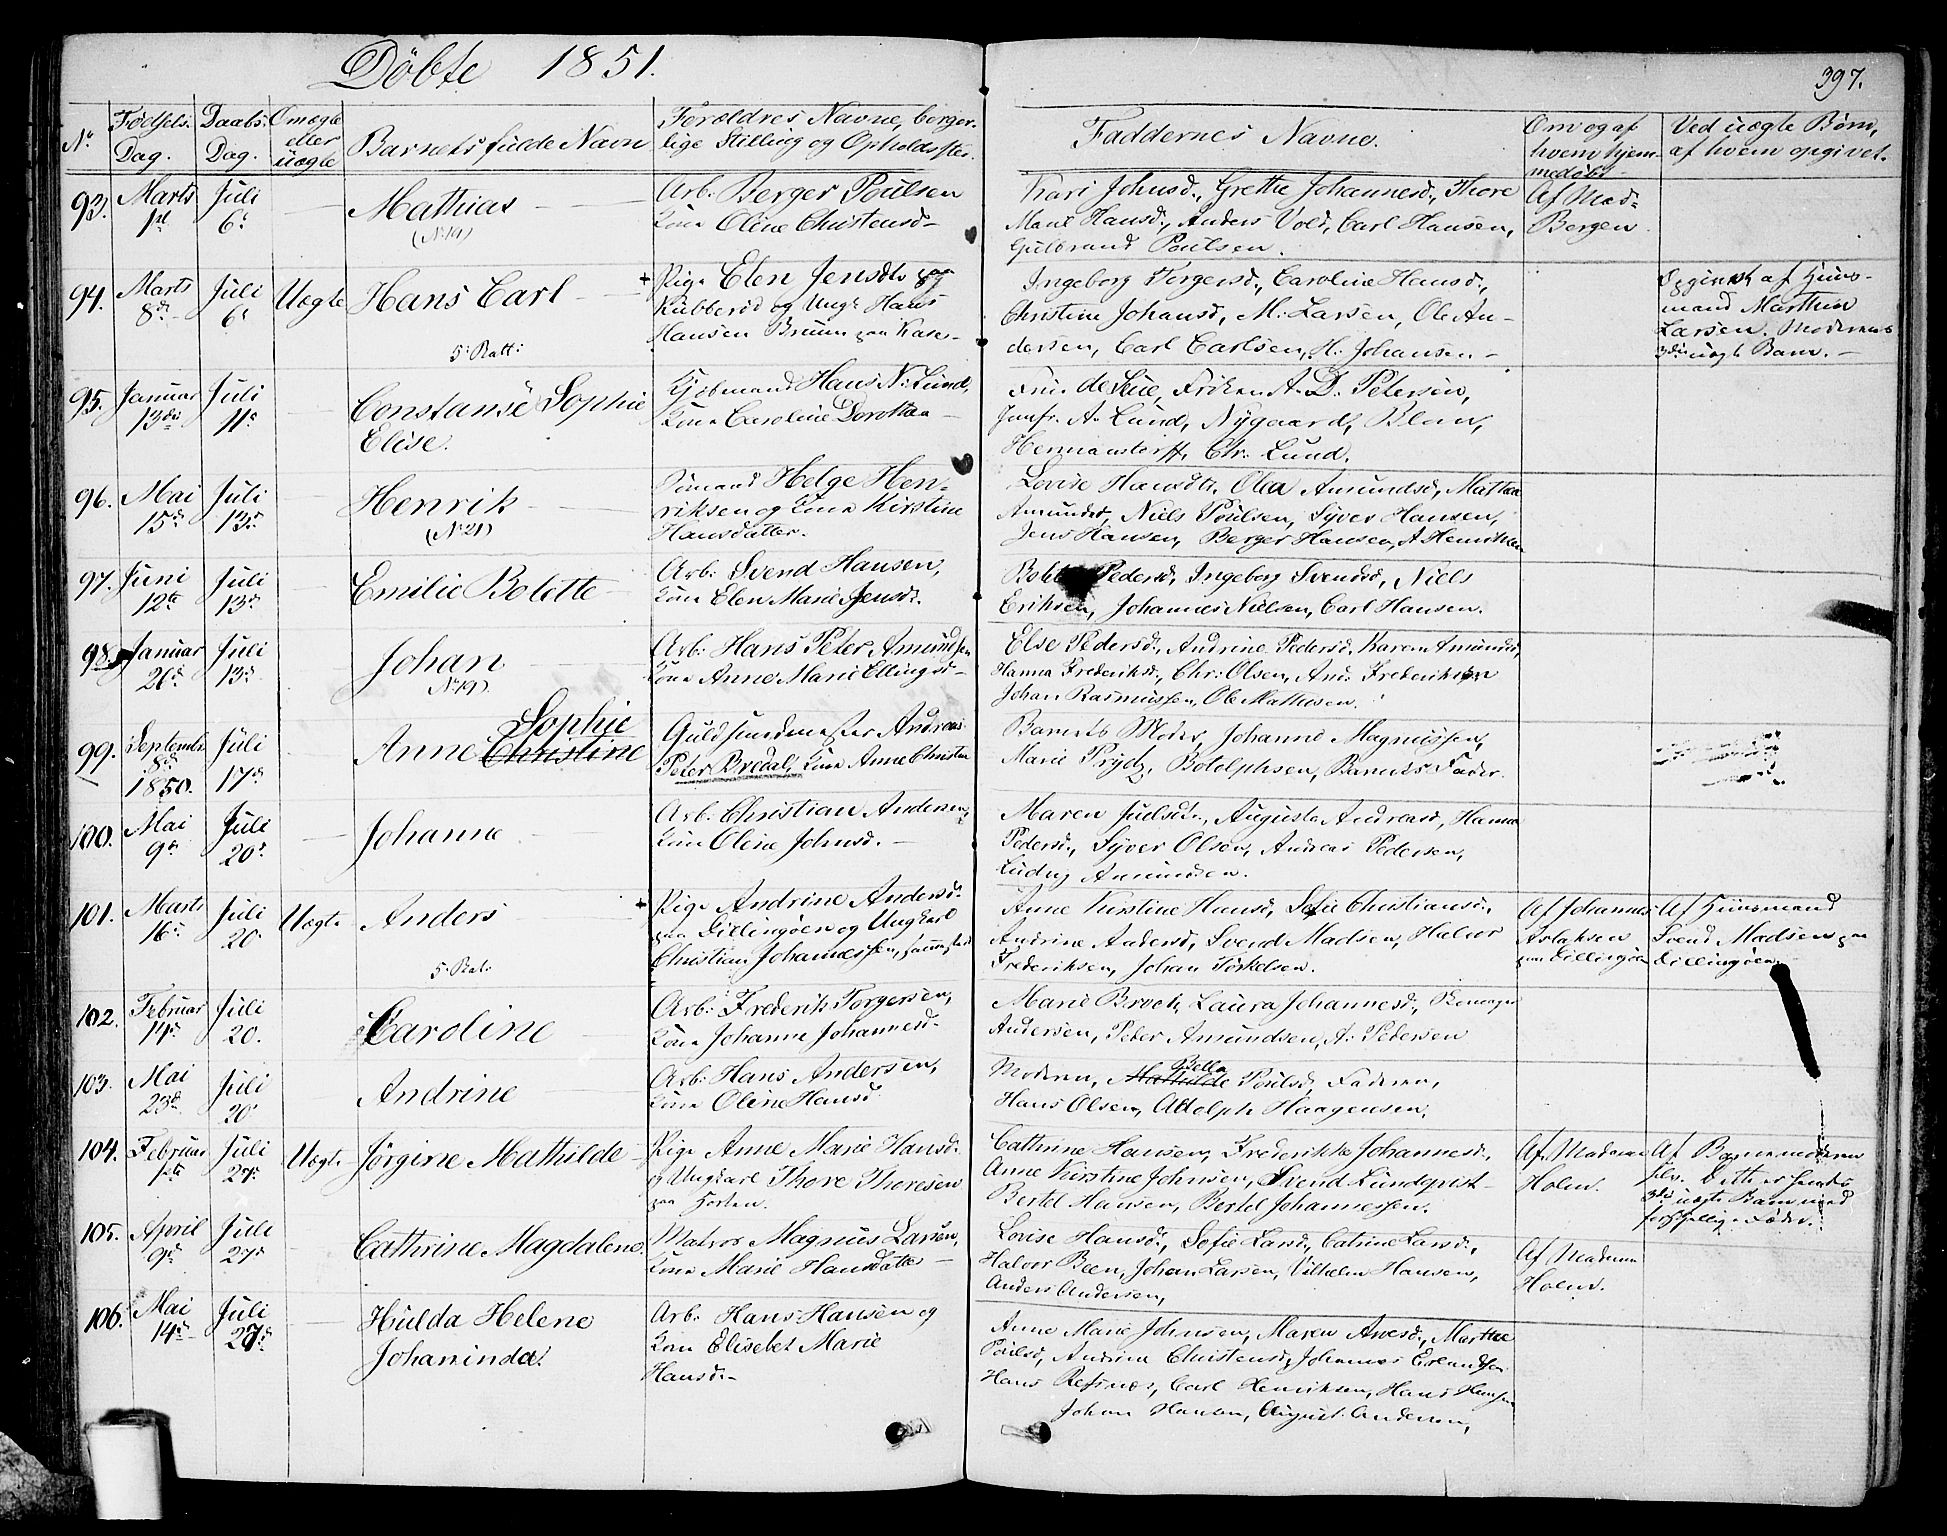 Döbte 1851.
397.
No
Fødsels-
Dag.
Daabs-
Dag.
Omægte
eller
uægte
Barnets fulde Navn
Foreldres Navne, borger-
lige Stilling og Opholdssted.
Faddernes Navne.
Om og af
hvem hjem-
medøbt
Ved uægte Børn,
af hvem opgivet.
93.
Marts
1st
Juli
6.
Mathias
(No 19)
Arb. Berger Poulsen
Kone Oline Christensd.
Kari Johnsd., Grethe Johannesd., Thore
Marie Hansd., Anders Vold, Carl Hansen,
Gulbrand Poulsen.
Af Mad:
Bergen
94.
Marts
8de
Juli
6.
Uægte
Hans Carl
5. Ratt:
+ Pige Elen Jensdtr paa
Kubberød og Ungk. Hans
Hansen Bruun paa Kase-
Ingeborg Torgersd., Caroline Hansd.,
Christine Johansd., M. Larsen, Ole An-
dersen, Carl Carlsen, H. Johansen
Opgivet af Huus-
mand Marthin
Larsen. Moderens
3die uægte Barn.
95.
Januar
13de
Juli
11.
Constanse Sophie
Elise.
Kjøbmand Hans N. Lund,
Kone Caroline Dorothea
Fru de Seue, Frøken A. D. Petersen,
Jomfr. A. Lund, Nygaard, Blom,
Hermanstorff, Chr. Lund.
96.
Mai
15de
Juli
13.
Henrik
(No 21)
Sømand Helge Hen-
riksen og Kone Kirstine
Hansdatter.
Lovise Hansdtr, Olea Amundsd., Mathea
Amundsd., Niels Poulsen, Syver Hansen,
Jens Hansen, Berger Hansen, A. Henriksen
97.
Juni
12te
Juli
13.
Emilie Bolette
Arb: Svend Hansen,
Kone Elen Marie Jensd.
Pedersd., Ingeborg Svendsd., Niels
Eriksen, Johannes Nielsen, Carl Hansen.
98.
Januar
26.
Juli
13.
Johan
No 19).
Arb: Hans Peter Amundsen
Kone Anne Marie Ellingsd.
Else Pedersd., Andrine Pedersd., Karen Amundsd.,
Hanna Frederiksd., Chr: Olsen, And. Frederiksen
Johan Rasmussen, Ole Mathisen.
99.
Septembr
8de
1850.
Juli
17.
Sophie
Anne Christine
Guldsmedmester Andreas
Peter Bredal, Kone Anne Christen
Barnets Moder, Johanne Magnussen,
Marie Prydz, Botolphsen, Barnets Fader.
100.
Mai
9de
Juli
20.
Johanne
Arb: Christian Andersen,
Kone Oline Johnsd.
Maren Juelsdtr., Auguste Andreasd., Hanna
Pedersd., Syver Olsen, Andreas Pedersen,
Ludvig Amundsen.
101.
Marts
16.
Juli
20.
Uægte
Anders
5. Rat:
+ Pige Andrine Andersd.
paa Dillingøen og Ungkarl
Christian Johannessen, sammesteds
Anne Kirstine Hansd., Sofie Christiansd.,
Andrine Andersd., Svend Madsen, Halvor
Frederiksen, Johan Torkelsen.
Af Johannes
Aslaksen
paa Dillingøen
Af Huusmand
Svend Madsen paa
Dillingøen.
102.
Februar
14.
Juli
20.
Caroline
Arb: Frederik Torgersen,
Kone Johanne Johannesd.
Marie Broch, Laura Johannesd.,
Andersen, Peder Amundsen, A. Pedersen
103.
Mai
23de
Juli
20.
Andrine
Arb: Hans Andersen,
Kone Oline Hansd.
Bella
Moderen, Mathilde Poulsd., Faderen,
Hans Olsen, Adolph Haagensen.
104.
Februar
1ste
Juli
27.
Uægte
Jørgine Mathilde
Pige Anne Marie Hansd.
og Ungkarl Thore Thoresen
paa Horten.
Cathrine Hansen, Frederikke Johannesd.,
Anne Kirstine Johnsen, Svend Lundqvist
Bertel Hansen, Bertel Johannessen.
Af Madam
Holm.
Af Barnemoderen
selv. Dette er hendes
3die uægte Barn med
forskjellige Fædre.
105.
April
9de
Juli
27de
Cathrine Magdalene.
Matros Magnus Larsen,
Kone Marie Hansdatter
Lovise Hansd., Sofie Larsd., Catrine Larsd.,
Halvor Been, Johan Larsen, Vilhelm Hansen,
Anders Andersen,
Af Madam
Holm.
106.
Mai
14.
Juli
27.
Hulda Helene
Johaninda.
Arb. Hans Hansen og
Kone Elisebet Marie
Hansd.
Anne Marie Johnsen, Maren Aresd., Marthe
Poulsd., Andrine Christensd., Johannes Erlandsen
Hans Refsnæs, Carl Henriksen, Hans Hansen
Johan Hansen, August Andersen,